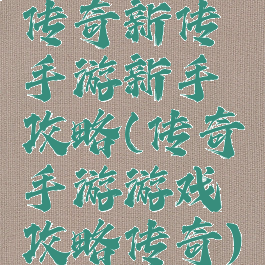 传奇新传
手游新手
攻略(传奇
手游游戏
攻略传奇)